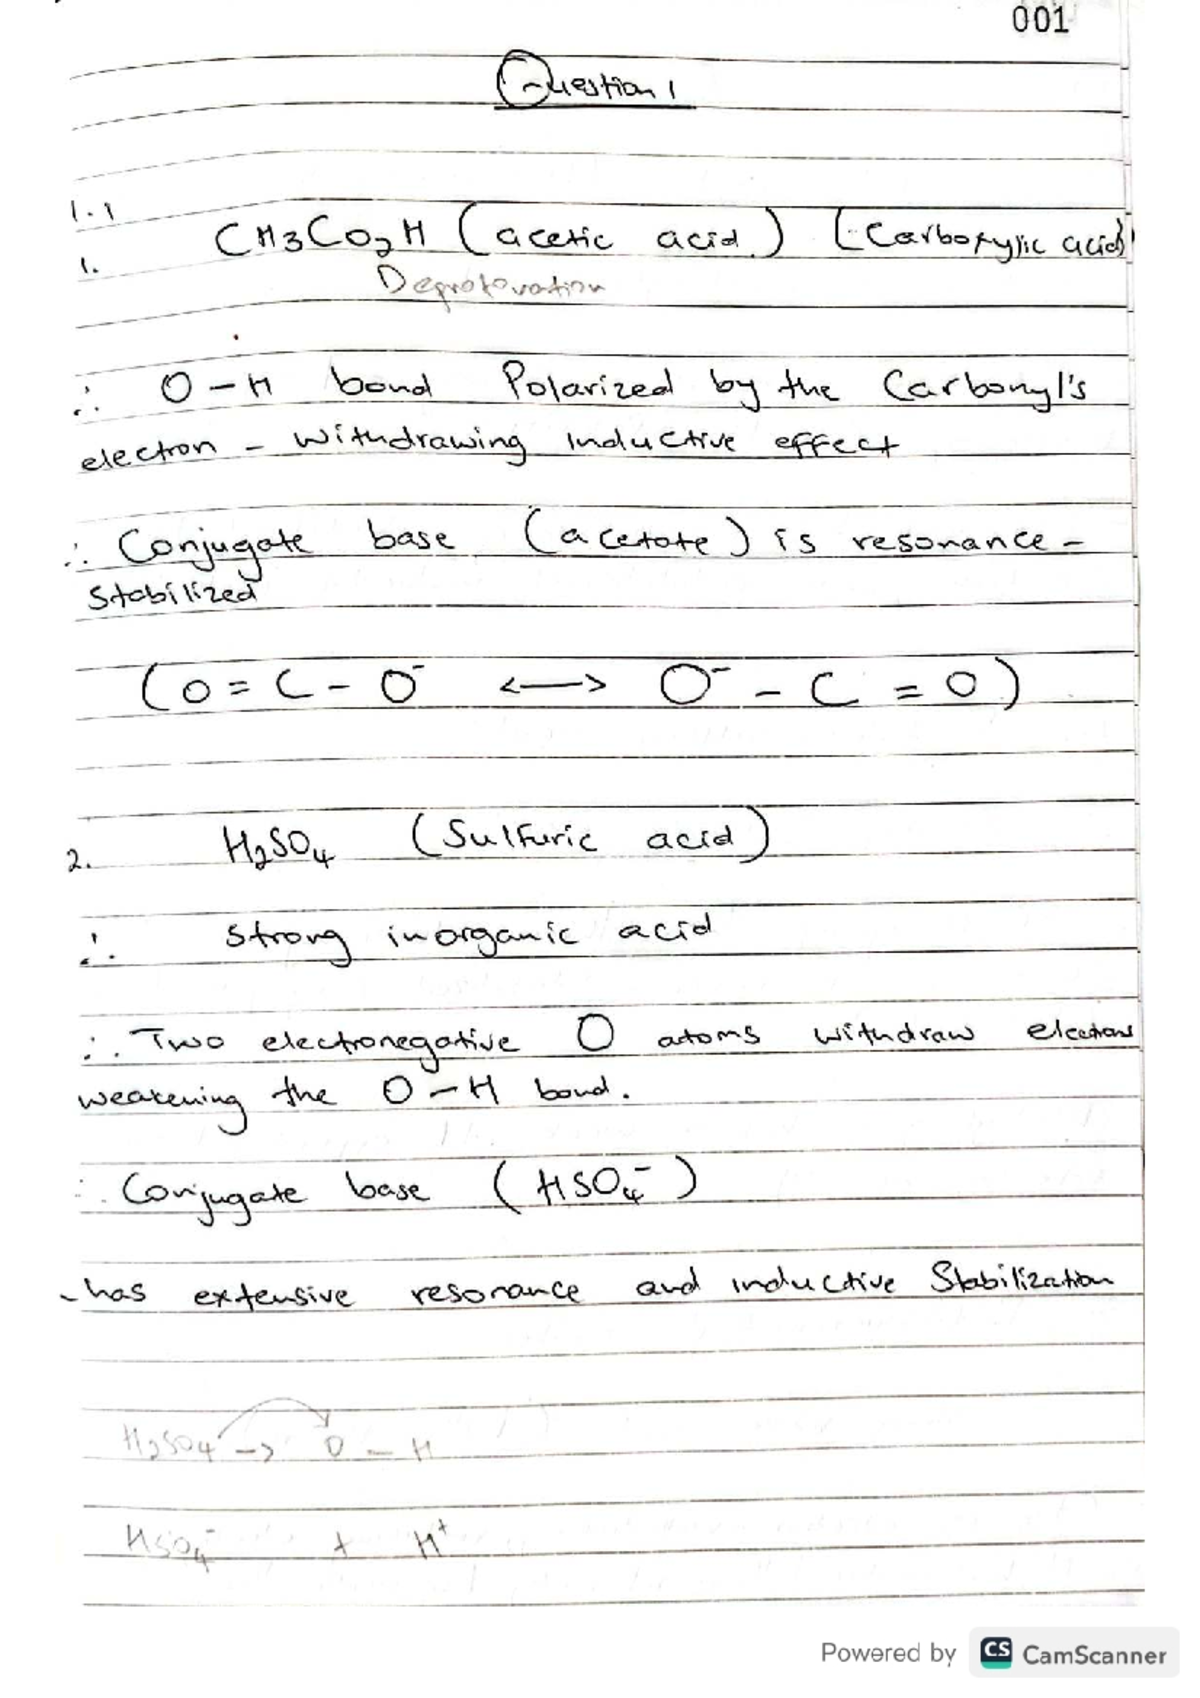 001
Question 1
1.1
1. CH3CO2H (acetic acid) (Carboxylic acid)
Deprotonation
∴ O-H bond Polarized by the Carbonyl's
electron - withdrawing inductive effect
∴ Conjugate base (acetate) is resonance -
Stabilized
(O=C-O⁻ <—> O⁻-C=O)
2. H2SO4 (Sulfuric acid)
∴ strong inorganic acid
∴ Two electronegative O atoms withdraw electrons
weakening the O-H bond.
∴ Conjugate base (HSO4⁻)
- has extensive resonance and inductive Stabilization
H2SO4 -> O - H
HSO4⁻ + H⁺
Powered by CS CamScanner